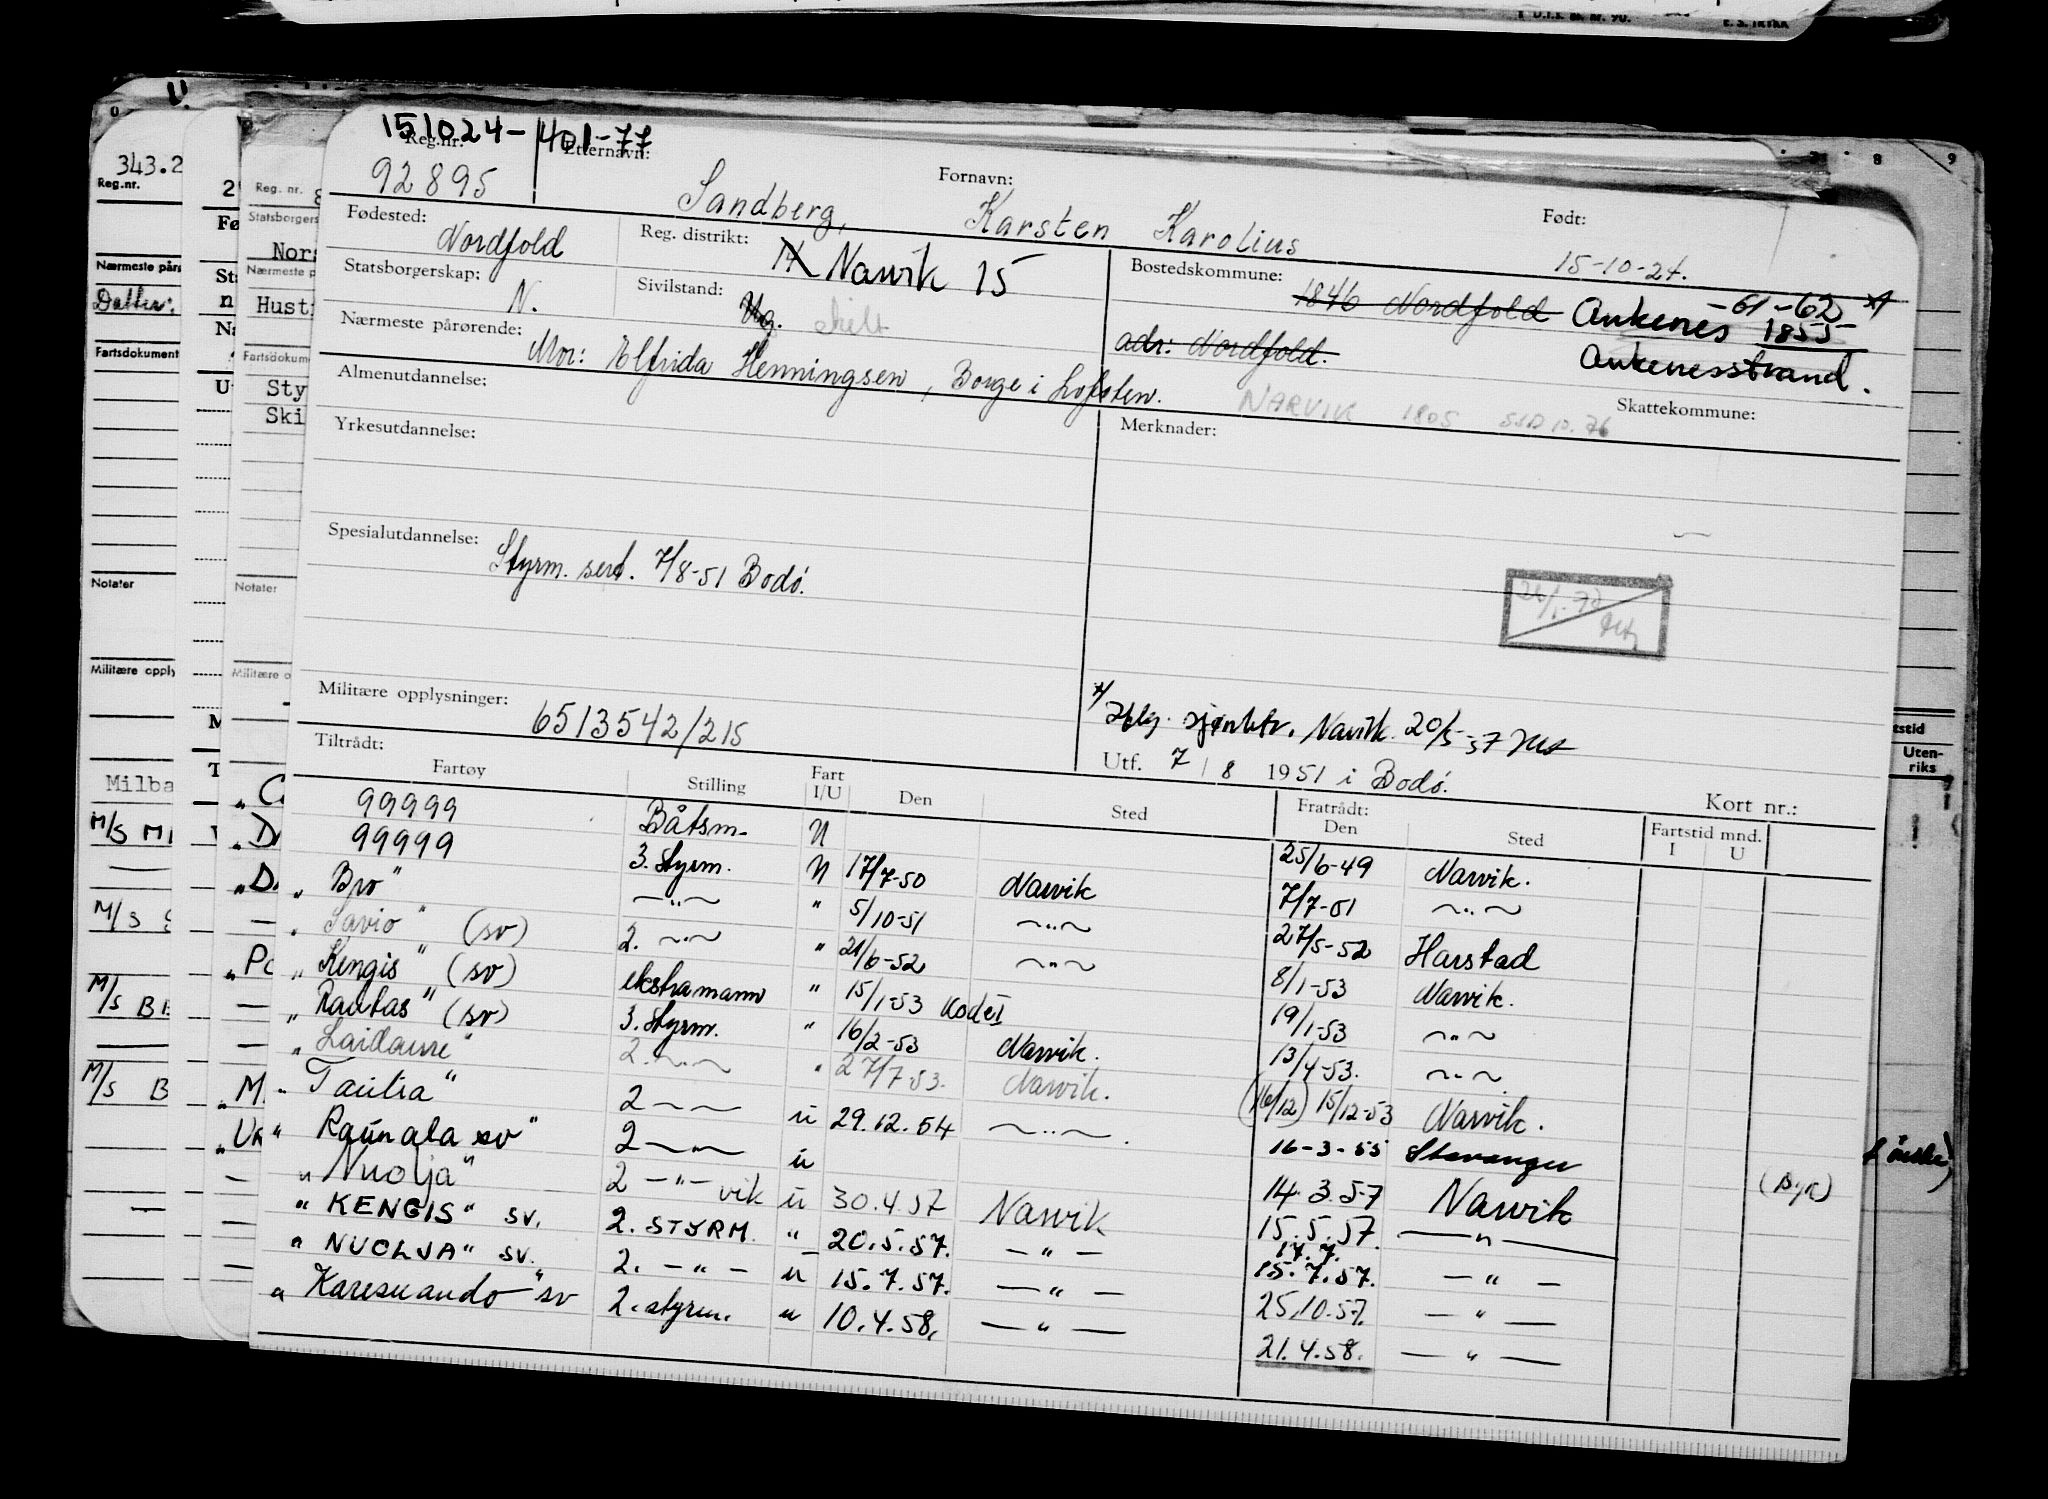 151024-401-77
Reg.nr: Etternavn: Fornavn: Født:
92895 Sandberg, Karsten Karolius 15-10-24.
Fødested: Nordfold Reg. distrikt: Narvik 15 Bostedskommune: 1846 Nordfold Ankenes -61-62 1855
Statsborgerskap: N. Sivilstand: Ug. skilt adr: Nordfold. Ankenesstrand.
Nærmeste pårørende: Mor: Elfrida Henningsen, Borge i Lofoten.
NARVIK 1805 Skattekommune:
Almenutdannelse:
Yrkesutdannelse: Merknader:
Spesialutdannelse: Styrm. sert. 7/8-51 Bodø.
Militære opplysninger: 6513542/215
Narvik. 20/5-57
Utf. 7/8 1951 i Bodø.
Kort nr.:
Tiltrådt: Fratrådt:
Fartøy Stilling Fart I/U Den Sted Den Sted Fartstid mnd. I U
99999 Båtsm. U 25/6-49 Narvik.
99999 3. Styrm. U 17/7-50 Narvik 7/7-51 -"-
" Bro" -"- " 5/10-51 -"- 27/5-52 Harstad
" Savio" (sv) 2. -"- " 21/6-52 -"- 8/1-53 Narvik.
" Kengis" (sv) ekstramann " 15/1-53 Kodei 19/1-53 -"-
" Rautas" (sv) 3. Styrm. " 16/2-53 Narvik. 13/4-53. -"-
" Laidaure" 2. -"- " 27/7-53. Narvik. (16/12) 15/12-53 Narvik.
" Tautra" 2 -"- u 29.12.54 -"-. 16-3-55 Stavanger
" Raunala sv" 2 -"- u 14.3.57 Narvik
" Nuolja" 2 -"- vik u 30.4.57 Narvik 15.5.57. -"-
" KENGIS" sv. 2. STYRM. " 20.5.57. -"- 17.7. 15.7.57. -"-
" NUOLJA" sv. 2. -"- u 15.7.57. -"- 25.10.57. -"-
" Karesuando" sv 2. styrm. " 10.4.58. -"- 21.4.58. -"-
343.2
Reg.nr.
Nærmeste pårs
Datter:
Fartsdokument
Notater
Militære opply
Milba
M/S MI
M/S
M/S BE
M/S B
Reg. nr.
Statsborgers
Nors
Nærmeste p
Hust
Fartsdokum
Sty
Ski
Notater
Militære o
Uten-
riks